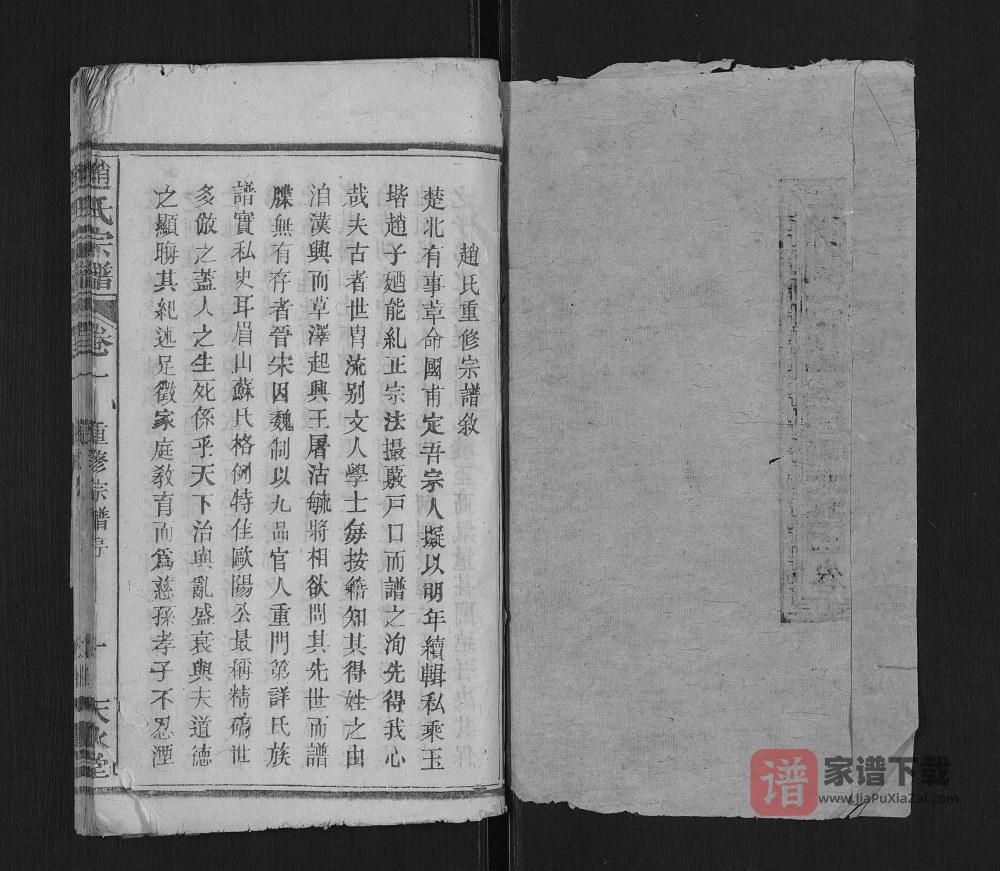 趙氏重修宗譜敘
楚北有事革命國甫定吾宗人擬以明年續輯私乘玉
堦趙子廼能糺正宗法撮覈戸口而譜之洵先得我心
哉夫古者世胄流别文人學士每按籍知其得姓之由
洎漢興而草澤起興王屠沽毓將相欲問其先世而譜
牒無有存者晉宋因魏制以九品官人重門第詳氏族
譜實私史耳眉山蘇氏格例特佳歐陽公最稱精確世
多倣之蓋人之生死係乎天下治與亂盛衰與夫道德
之顯晦其糺述足徵家庭敎育而爲慈孫孝子不忍湮
趙氏宗譜
卷一
重修宗譜序
一
天水堂
谱 家谱下载
www.JiaPuXiaZai.com